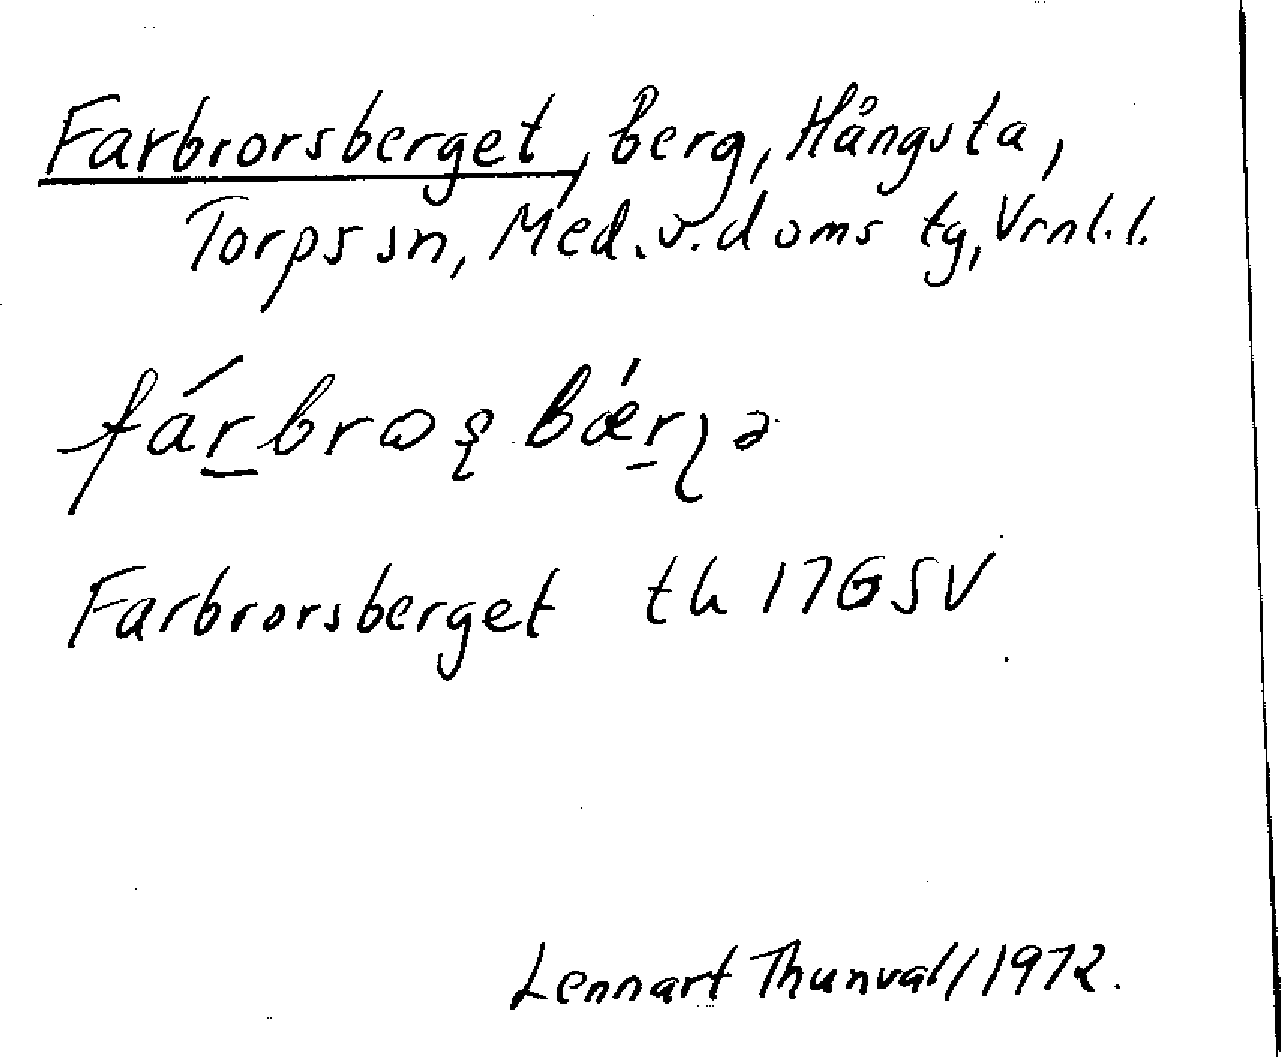 Farbrorsberget, berg, Hångsta,
Torps sn, Med.v.doms tg, Vrnl.l.
Farbrorsberget tk 17G SV
Lennart Thunvall 1972.